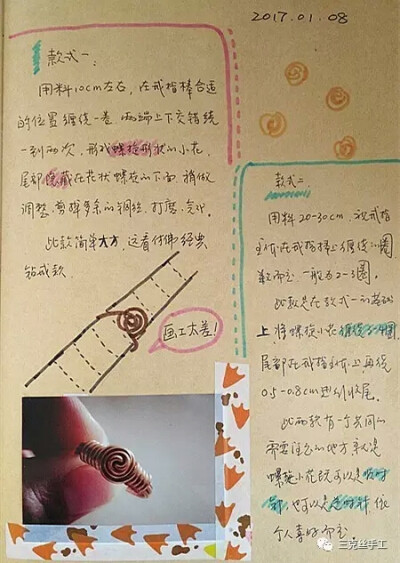 2017.01.08
款式一:
用料10cm左右,在戒指棒合适
的位置缠绕一卷,两端上下交错绕
一到两次,形成螺旋形状的小花.
尾部隐藏在花状螺旋的下面,稍做
调整,剪掉多余的铜丝,打磨,完成.
此款简单大方,这看仿佛经典
钻戒款.
画工太差!
款式二:
用料20-30cm,视戒指
在戒指棒上缠绕
数而定,一般为2-3圈.
此款是在款式一的基础
上,将螺旋小花缠绕
尾部在戒指上再绕
0.5-0.8cm收尾.
此两款有一个共同的
需要注意的地方就是
螺旋小花既可以是顺时
针,也可以是逆时针,依
个人喜好而定.
三克丝手工